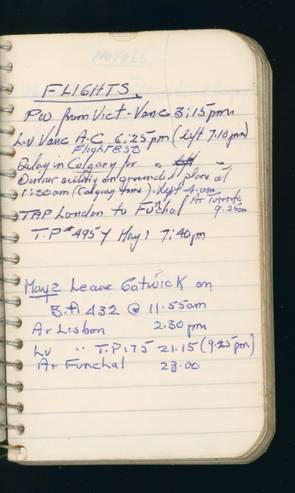 FLIGHTS.
PW from Vict-Vanc 3:15pm
Lv Vanc A.C 6:25pm (left 7.10pm)
Flight 850
Delay in Calgary for
Dinner sitting on ground plane at
1:30am (Calgary time), left 4.am
Ar Toronto
TAP London to Fuchal 9.25am
T.P # 495 Y May 1 7:40pm
May 2 Leave Gatwick on
B.A 432 @ 11.55am
Ar Lisbon 2.30 pm
Lv " T.P. 175 21.15 (9.25 pm)
Ar Funchal 23.00